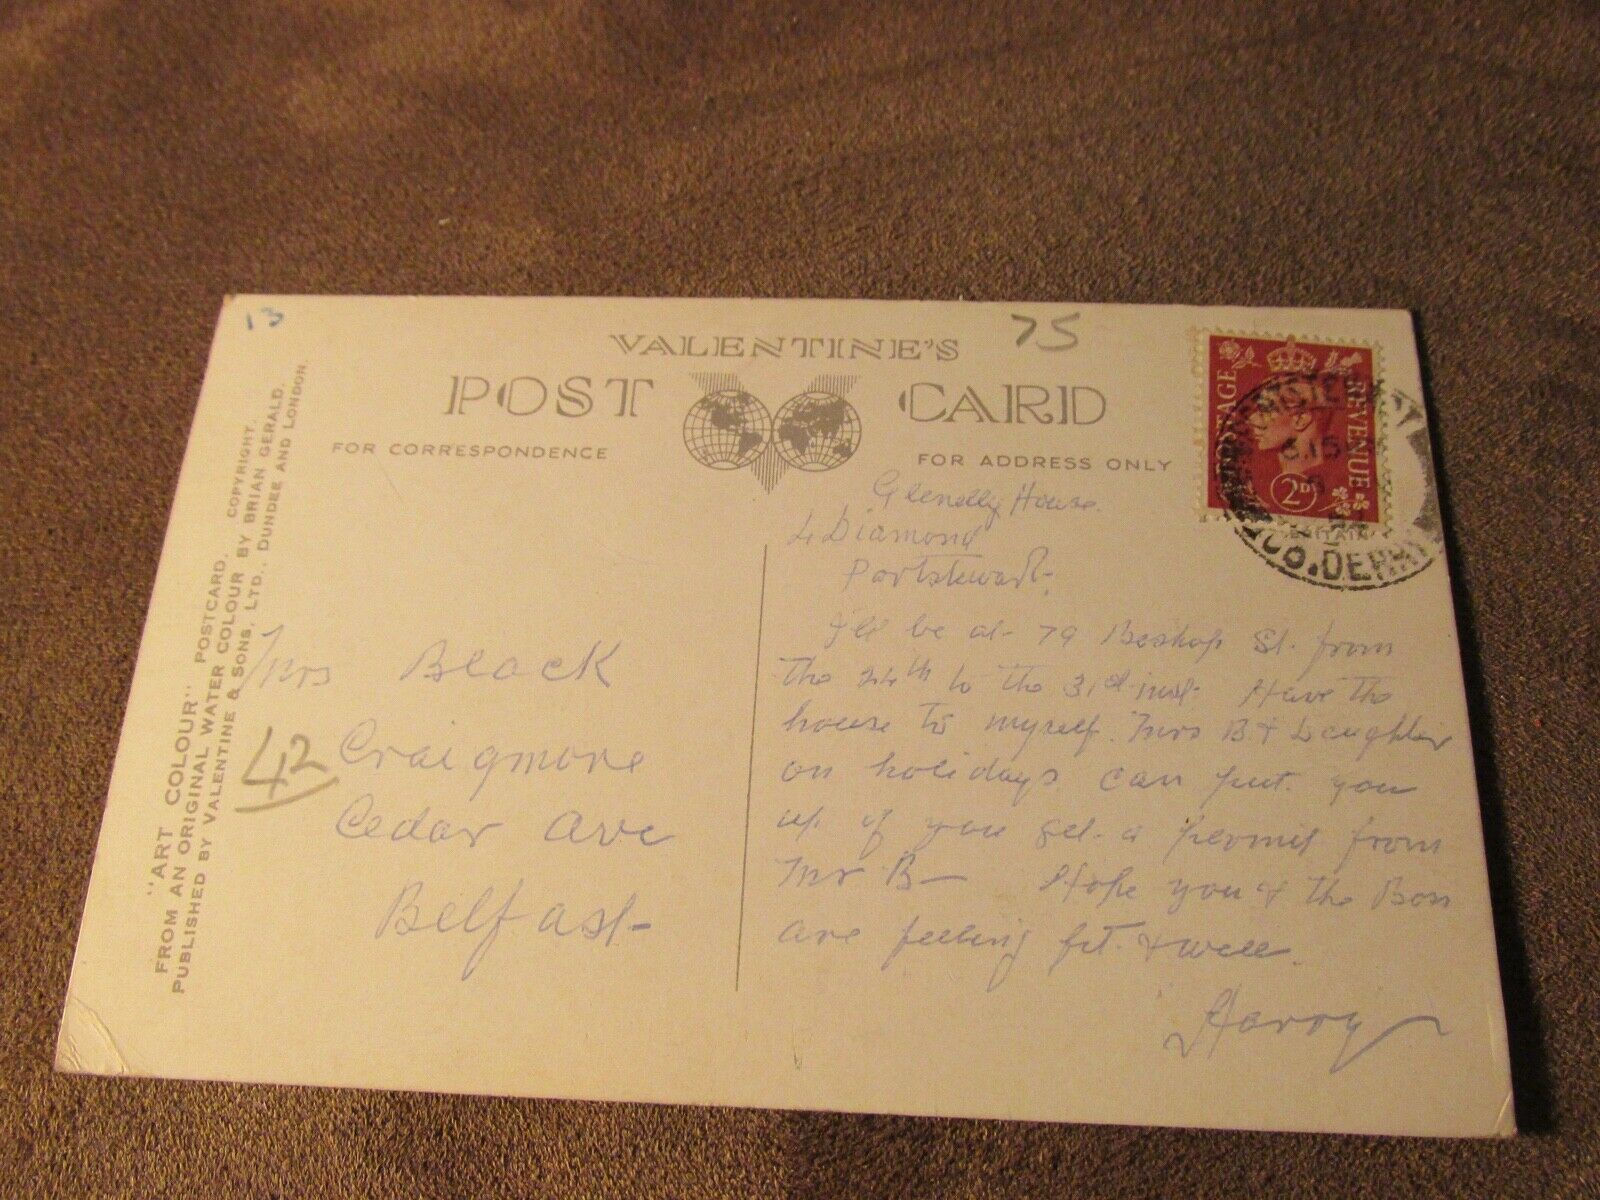 13
75
VALENTINE'S
POST CARD
FOR CORRESPONDENCE
FOR ADDRESS ONLY
"ART COLOUR" POSTCARD. COPYRIGHT.
FROM AN ORIGINAL WATER COLOUR BY BRIAN GERALD.
PUBLISHED BY VALENTINE & SONS, LTD., DUNDEE AND LONDON.
POSTAGE REVENUE
2D
6.15
BRITAIN
CO. DERRY
42
Mrs Black
Craigmore
Cedar Ave
Belfast
Glenelly House.
4 Diamond
Portstewart.
I'll be at 79 Bishop St. from
the 24th to the 31st inst. Have the
house to myself. Mrs B & daughter
on holidays can put you
up if you get a permit from
Mr B— Hope you & the Boss
are feeling fit & well.
Harry